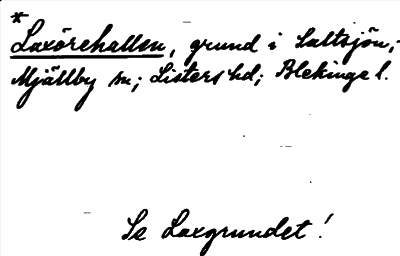 *
Laxörehallen, grund i Saltsjön;
Mjällby sn; Listers hd; Blekinge l.
Se Laxgrundet!